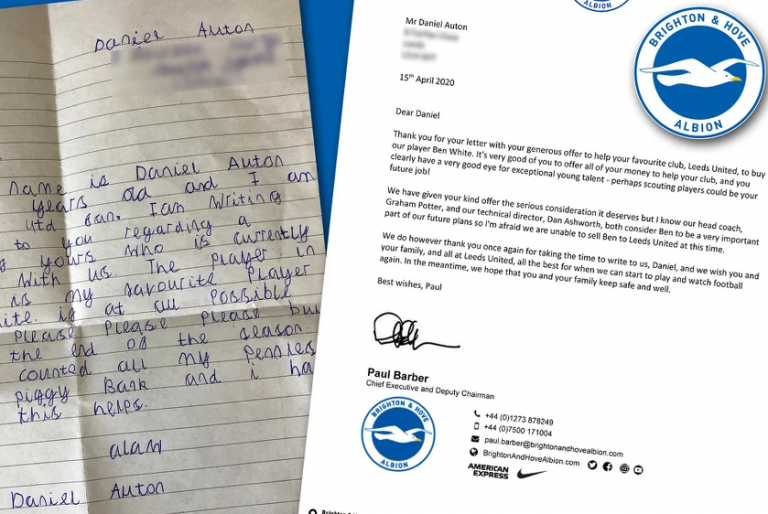 Daniel Auton
name is Daniel Auton
years old and I am
utd fan. I am writing
to you regarding a
yours who is currently
with us. The player in
is my favourite player
ite. if at all possible
please please please bu
the end of the season
counted all my pennies
piggy Bank and i ha
this helps.
Daniel Auton
ALBION
BRIGHTON & HOVE
ALBION
Mr Daniel Auton
15th April 2020
Dear Daniel
Thank you for your letter with your generous offer to help your favourite club, Leeds United, to buy
our player Ben White. It's very good of you to offer all of your money to help your club, and you
clearly have a very good eye for exceptional young talent - perhaps scouting players could be your
future job!
We have given your kind offer the serious consideration it deserves but I know our head coach,
Graham Potter, and our technical director, Dan Ashworth, both consider Ben to be a very important
part of our future plans so I'm afraid we are unable to sell Ben to Leeds United at this time.
We do however thank you once again for taking the time to write to us, Daniel, and we wish you and
your family, and all at Leeds United, all the best for when we can start to play and watch football
again. In the meantime, we hope that you and your family keep safe and well.
Best wishes, Paul
Paul Barber
Chief Executive and Deputy Chairman
BRIGHTON & HOVE
ALBION
+44 (0)1273 878249
+44 (0)7500 171004
paul.barber@brightonandhovealbion.com
BrightonAndHoveAlbion.com
AMERICAN
EXPRESS